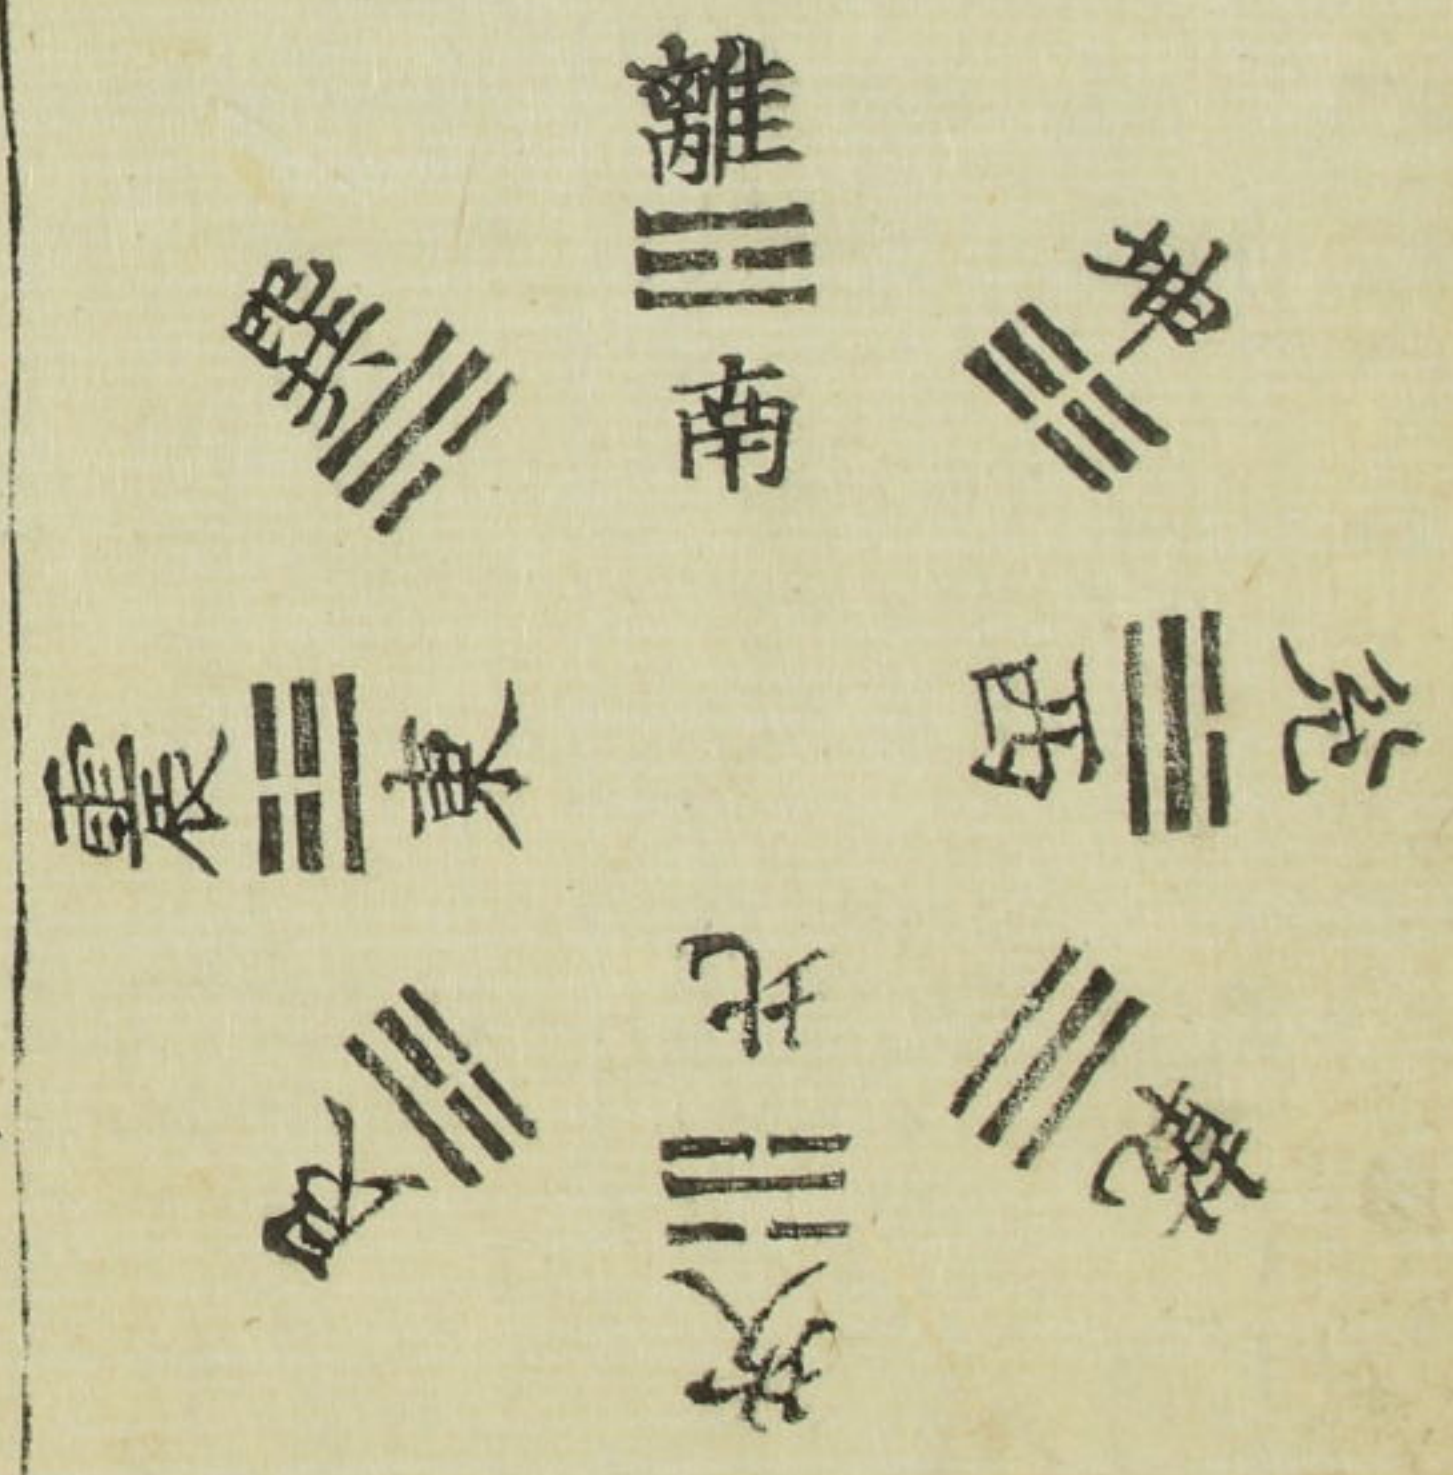 離
☲
南
坤
☷
兌
☱
西
乾
☰
坎
☵
北
艮
☶
震
☳
東
巽
☴